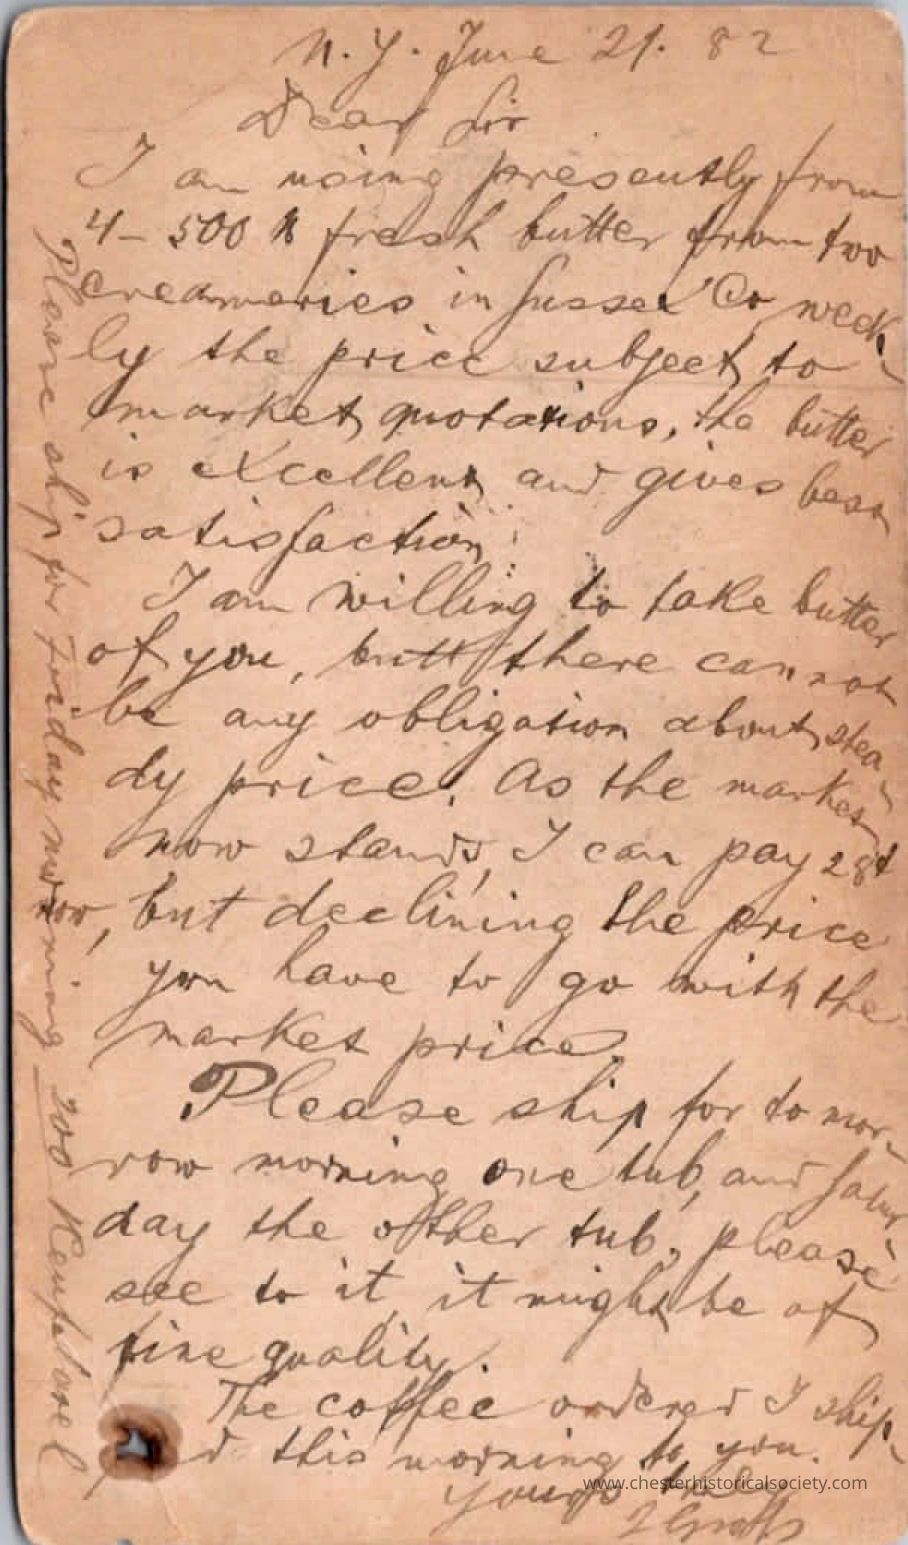 N. Y. June 21. 82
Dear Sir
I am using presently from
4 - 500 lb fresh butter from two
creameries in Sussex Co week-
ly the price subject to
market quotations, the butter
is excellent and gives best
satisfaction.
I am willing to take butter
of you, butt there can not
be any obligation about stea-
dy price. As the market
now stands, I can pay 28¢
now, but declining the price
you have to go with the
market price.
Please ship for to mor-
row morning one tub, and Satur
day the other tub, please
see to it it might be of
fine quality.
The coffee ordered I ship-
ed this morning to you.
Yours truly
Please ship for Friday morning 200
www.chesterhistoricalsociety.com